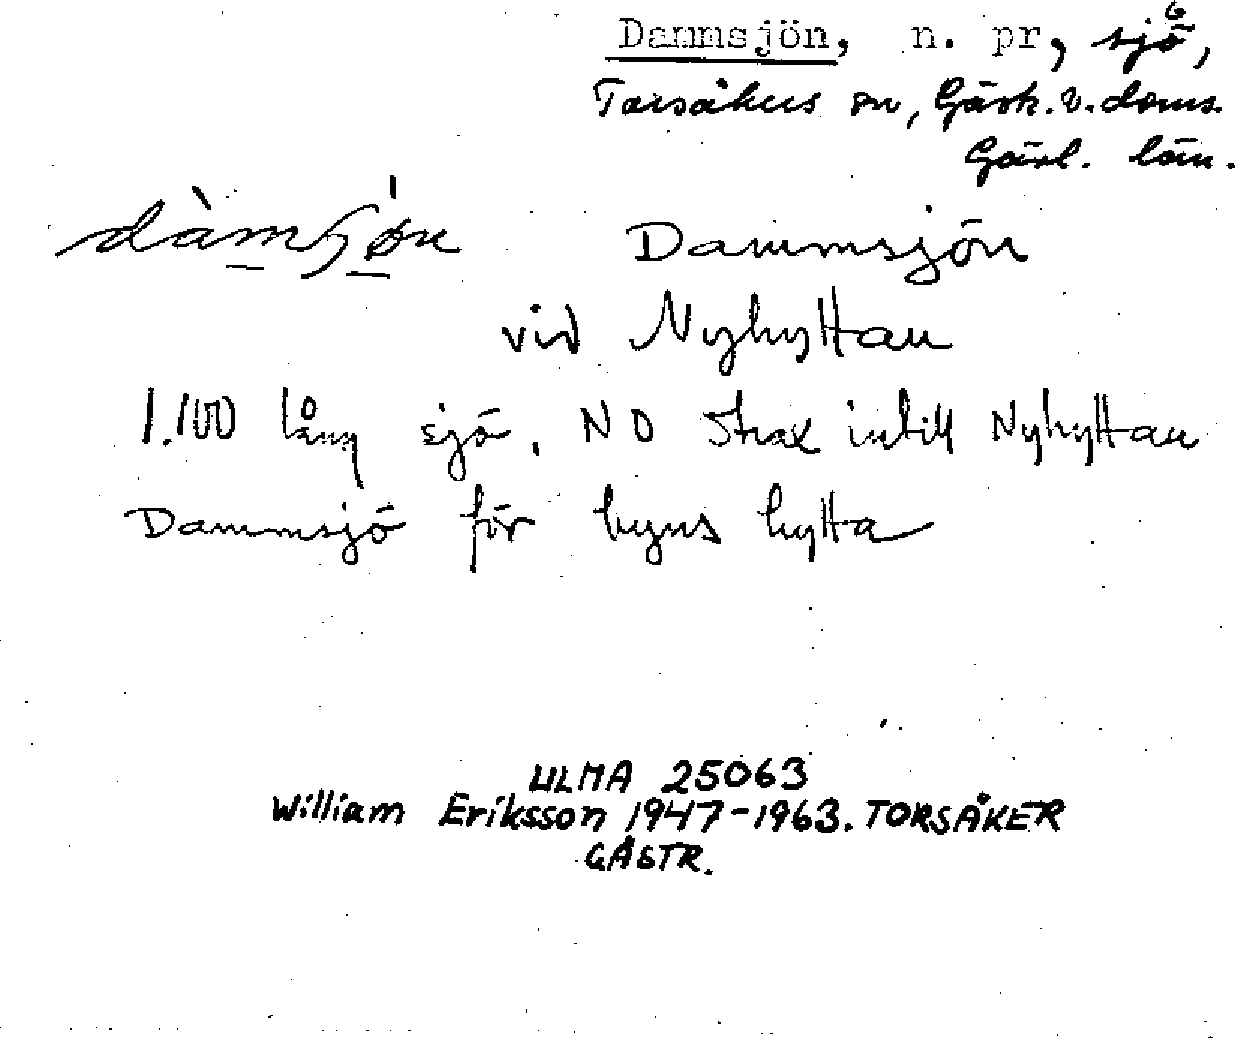 Dammsjön, n. pr, sjö,
Torsåkers sn, Gästr. v. doms.
Gävl. län.
Dammsjön
vid Nyhyttan
1.100 lång sjö, NO strax intill Nyhyttan
Dammsjö för hyns hytta
ULMA 25063
William Eriksson 1947-1963. TORSÅKER
GÄSTR.